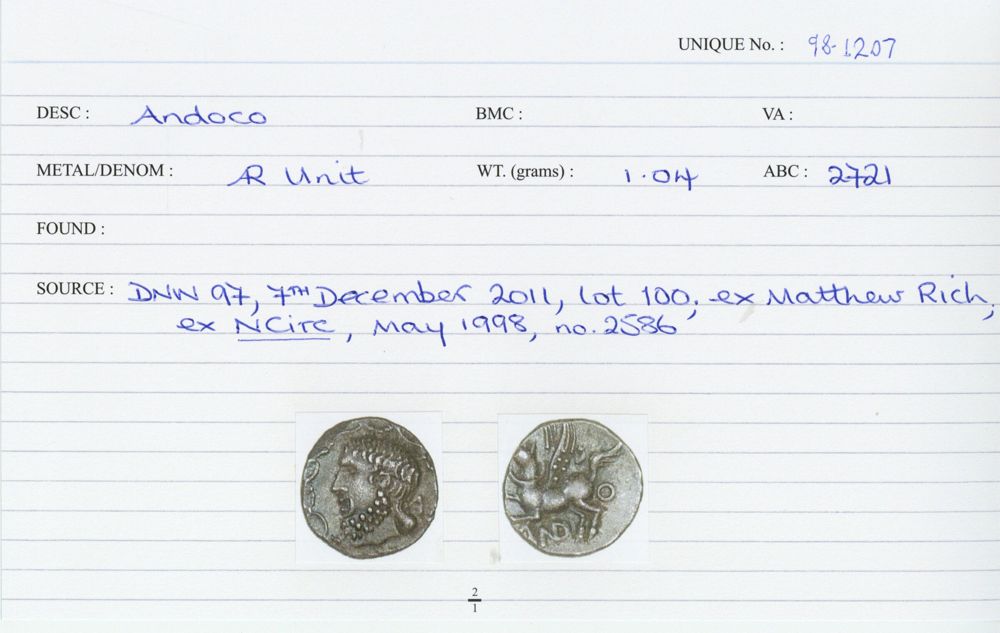 UNIQUE No. : 98-1207
DESC : Andoco BMC : VA :
METAL/DENOM : AR Unit WT. (grams) : 1.04 ABC : 2721
FOUND :
SOURCE : DNW 97, 7TH December 2011, lot 100, ex Matthew Rich,
ex NCirc, May 1998, no. 2586
AND
2
1